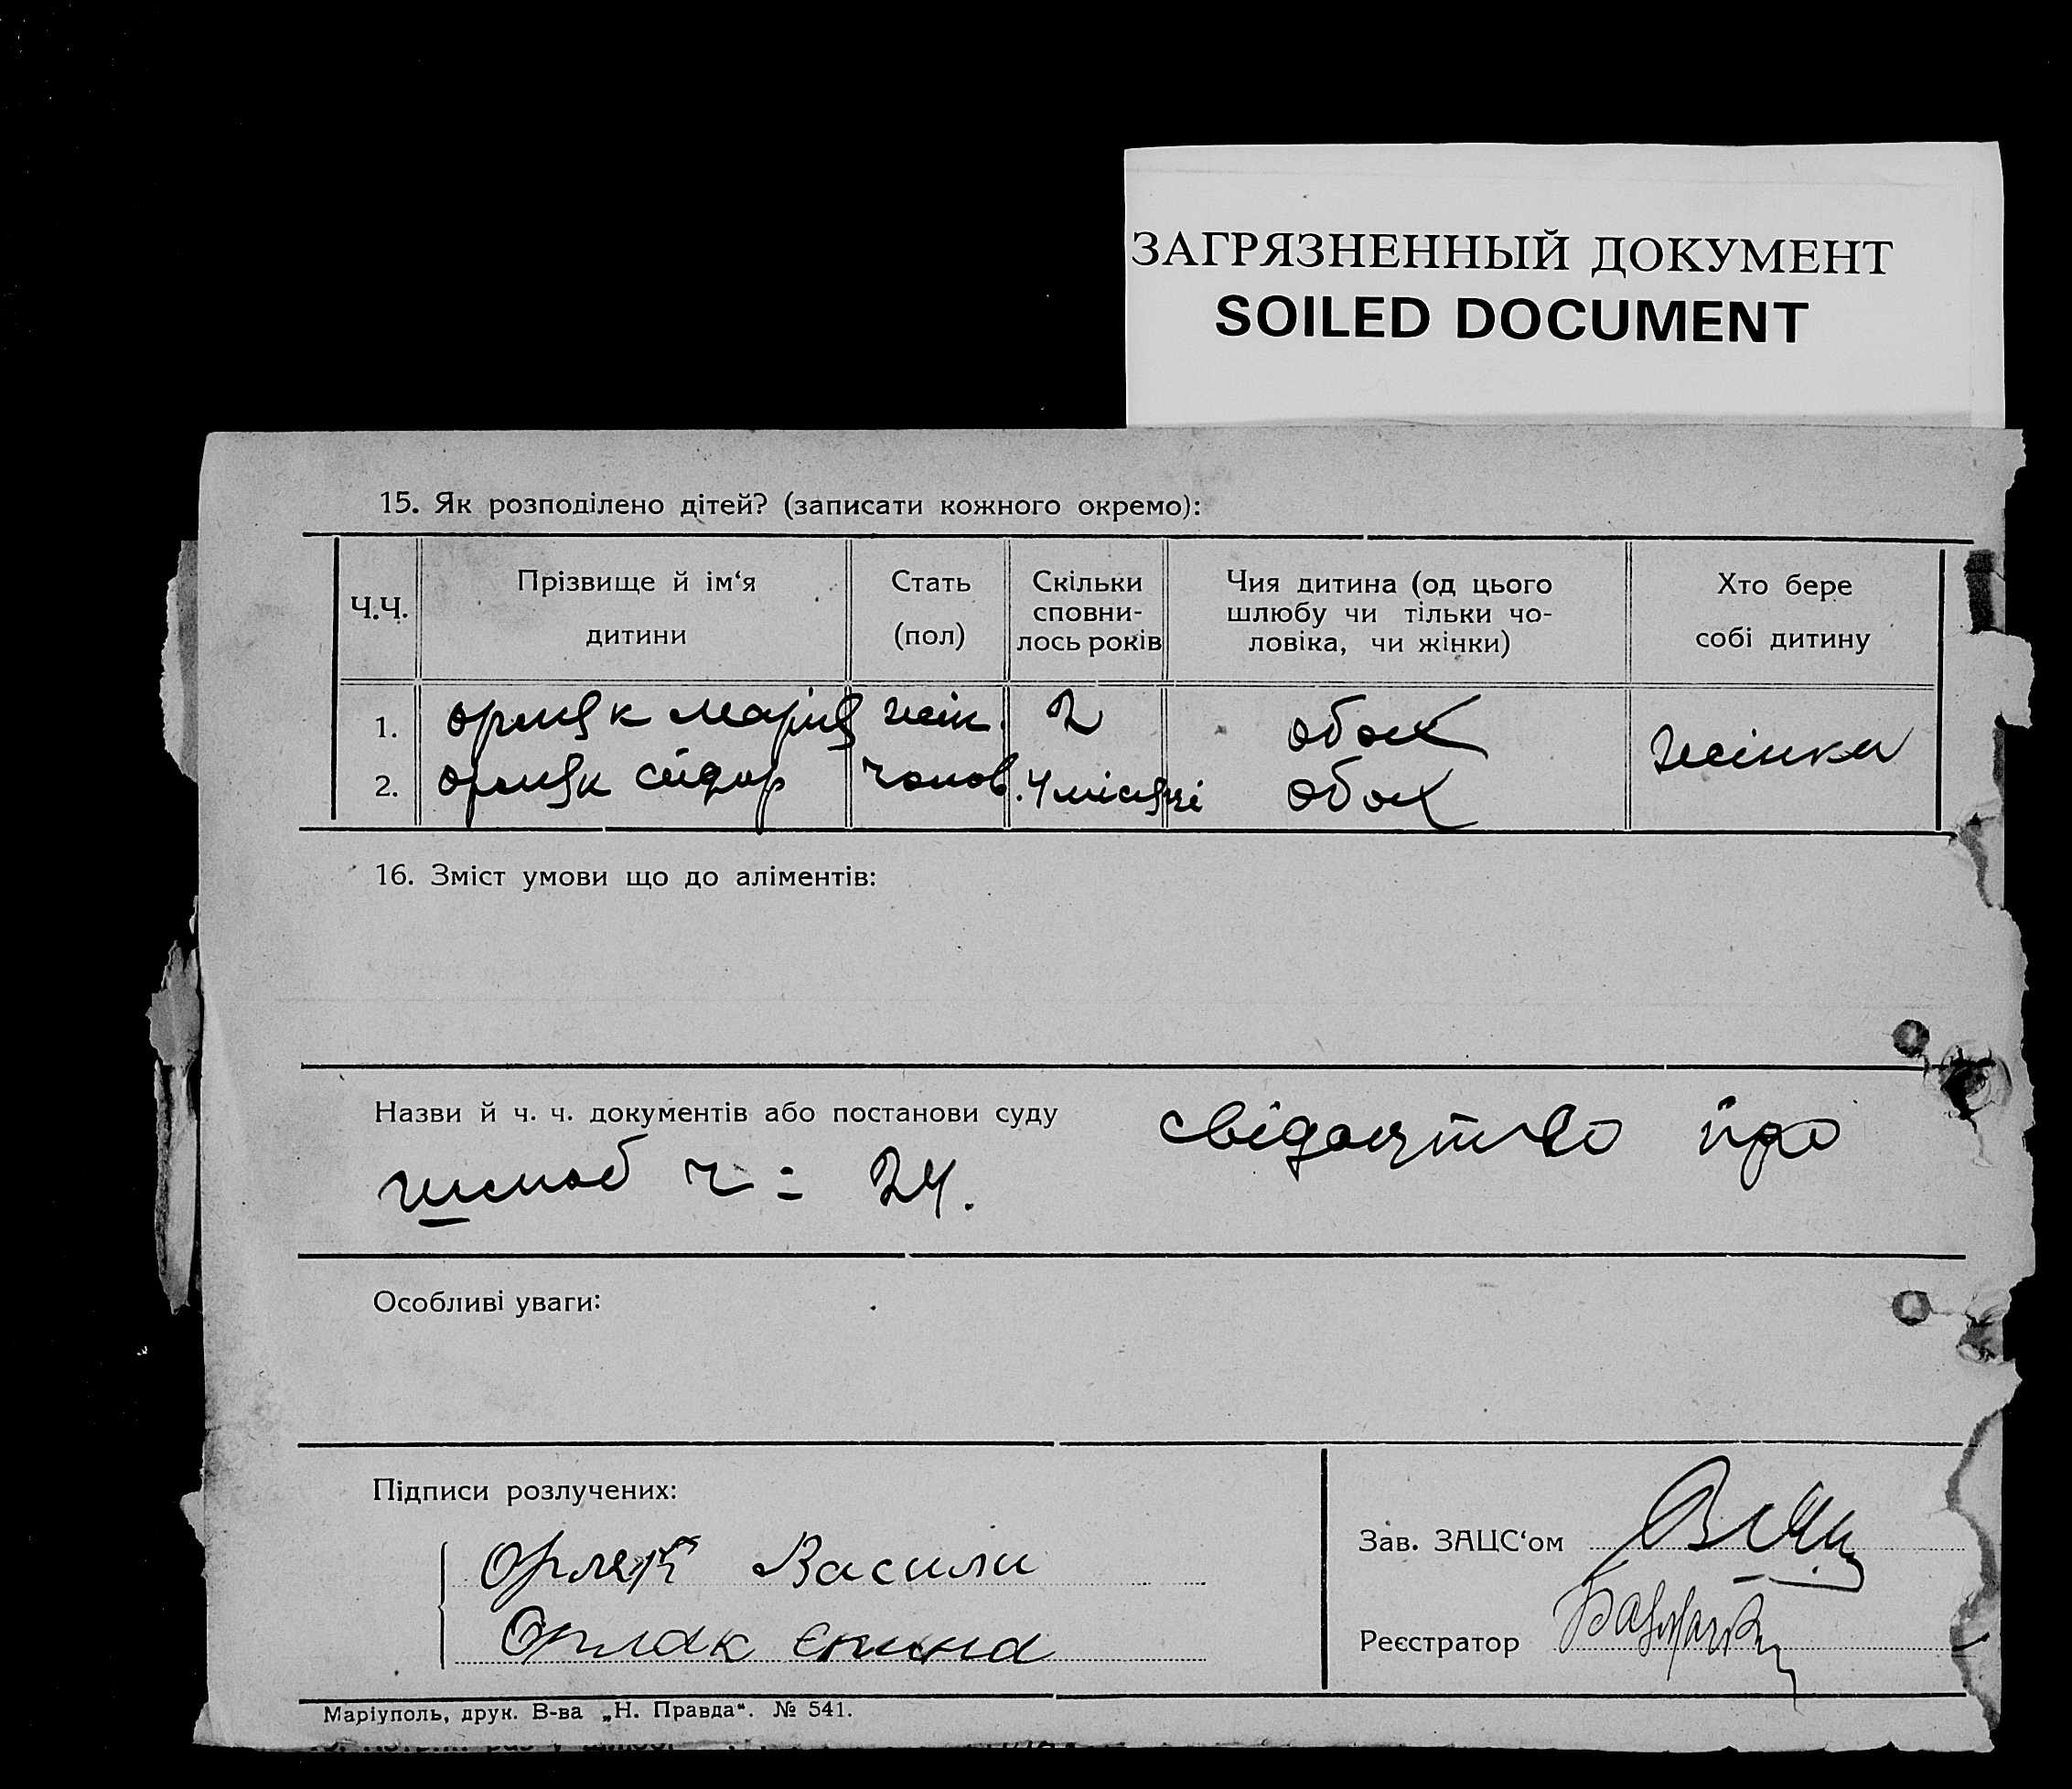 ЗАГРЯЗНЕННЫЙ ДОКУМЕНТ
SOILED DOCUMENT
15. Як розподілено дітей? (записати кожного окремо):
Ч.Ч.
Прізвище й ім‘я
дитини
Стать
(пол)
Скільки
сповни-
лось років
Чия дитина (од цього
шлюбу чи тільки чо-
ловіка, чи жінки)
Хто бере
собі дитину
1. Орляк Марія жін. 2 обох жінка
2. Орляк Сидор чолов. 4 місяці обох
16. Зміст умови що до аліментів:
Назви й ч. ч. документів або постанови суду свідоцтво про
шлюб ч = 24.
Особливі уваги:
Підписи розлучених:
Орляк Васили
Орлак
Зав. ЗАЦС‘ом
Реєстратор
Маріуполь, друк. В-ва „Н. Правда“. № 541.